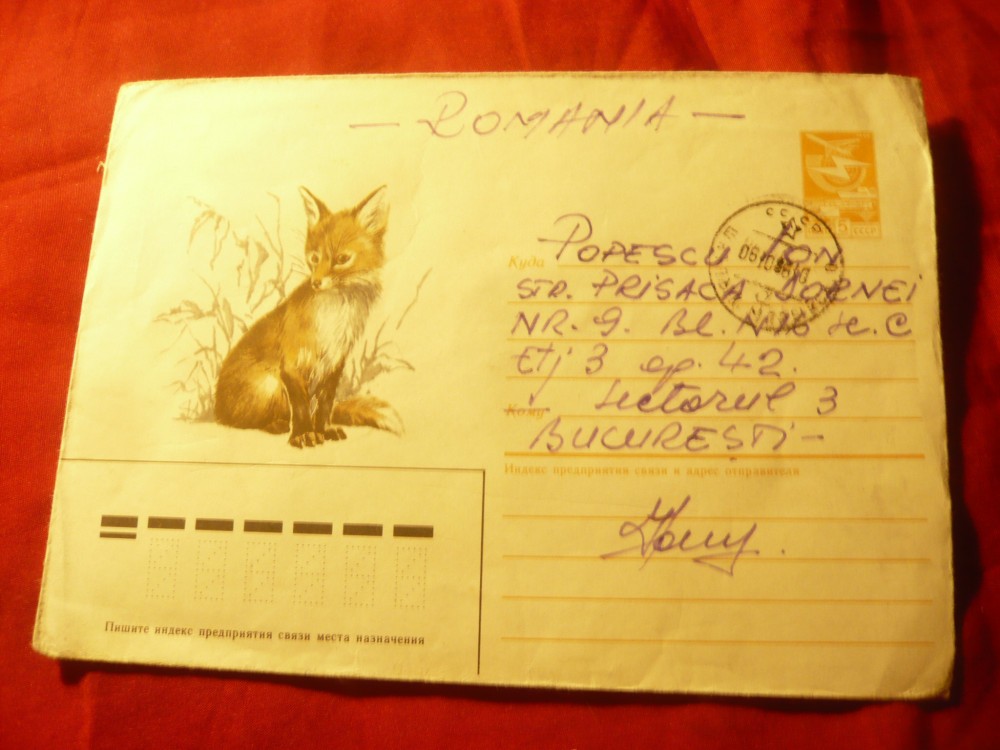 — ROMANIA —
5 СССР
Куда POPESCU ION
STR. PRISACA DORNEI
NR. 9. BL. N16 Sc. C
Etj 3 ap. 42.
Кому Sectorul 3
BUCUREȘTI —
Индекс предприятия связи и адрес отправителя
Пишите индекс предприятия связи места назначения